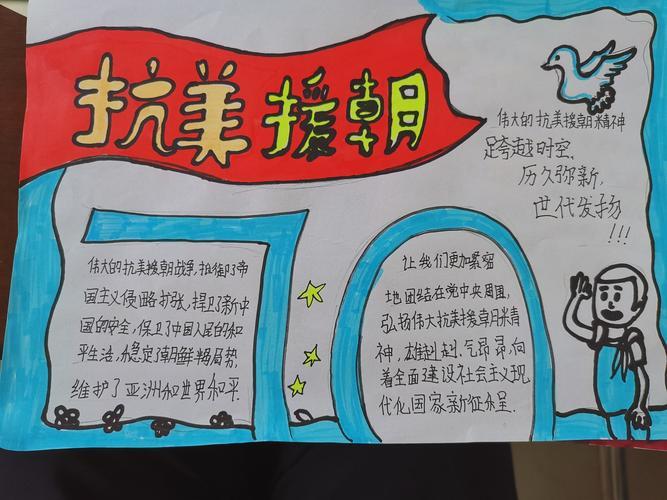 抗美援朝
伟大的抗美援朝精神
跨越时空,
历久弥新,
世代发扬
!!!
伟大的抗美援朝战争,抵御了帝
国主义侵略扩张,捍卫了新中
国的安全,保卫了中国人民的和
平生活,稳定了朝鲜半岛局势,
维护了亚洲和世界和平.
70
让我们更加紧密
地团结在党中央周围,
弘扬伟大抗美援朝精
神,雄赳赳.气昂昂,向
着全面建设社会主义现
代化国家新征程.